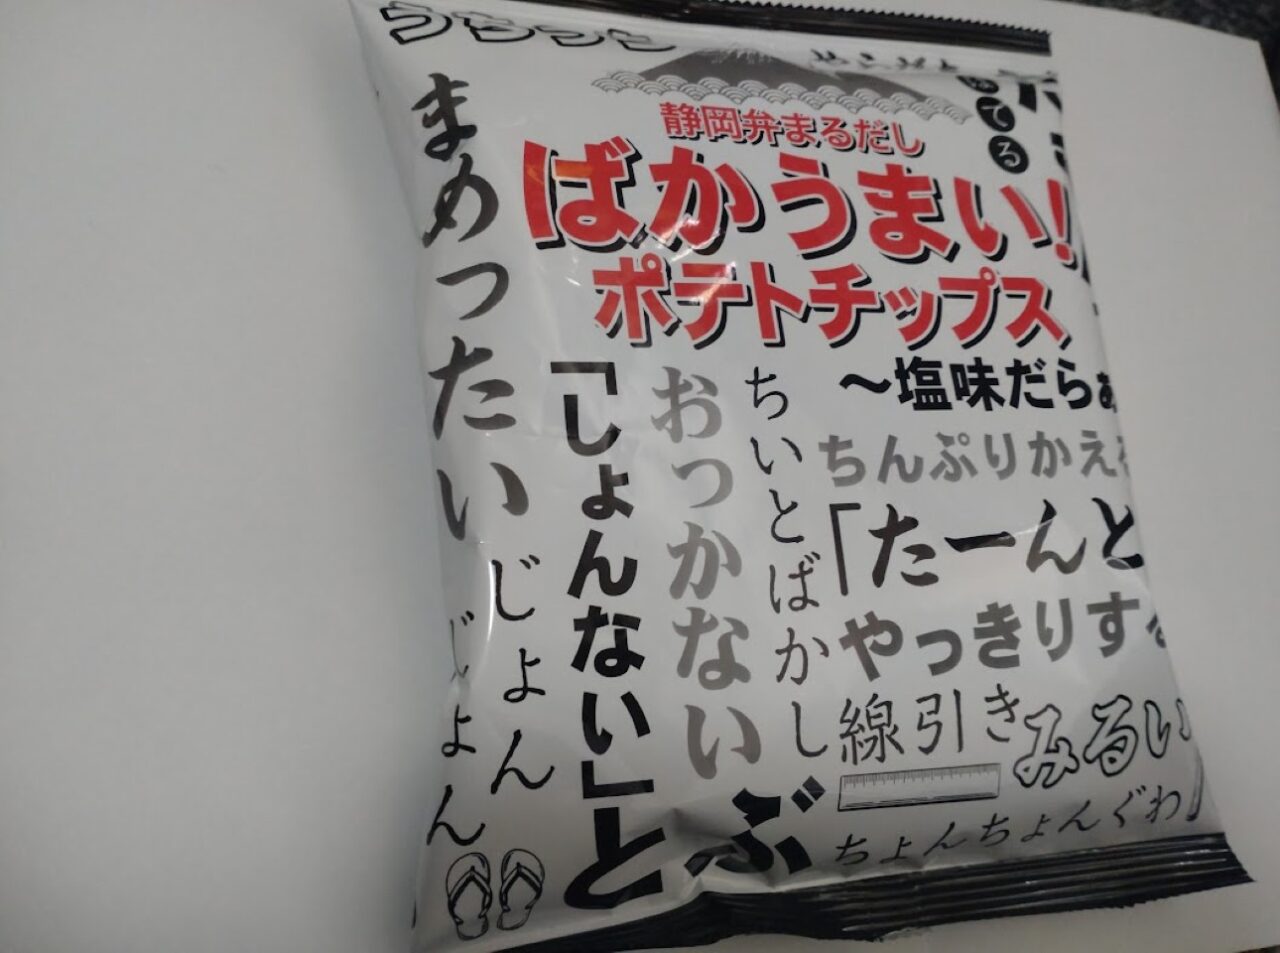 静岡弁まるだし
ばかうまい!
ポテトチップス
～塩味だらぁ
まめったい
じょんじょん
「しょんない」
とぶ
おっかない
ちいとばかし
ちんぷりかえ
「たーんと
やっきりす
線引き
みるい
ちょんちょんぐわ
てる